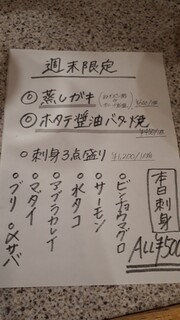 週末限定
◎蒸しガキ
◎ホタテ醤油バター焼
◎刺身3点盛り ¥1,200/1皿
本日刺身
ALL¥500
・ビンチョウマグロ
・サーモン
・水タコ
・アブラカレイ
・マダイ
・ブリ ・〆サバ